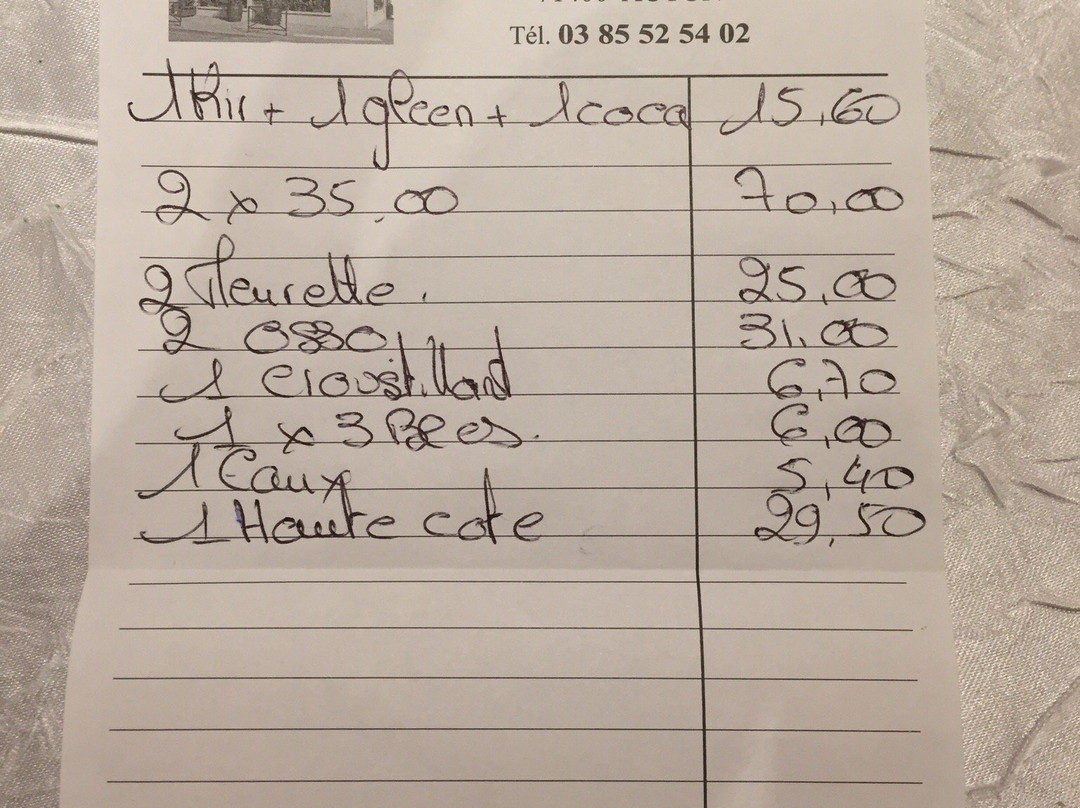 Tél. 03 85 52 54 02
1 Kir + 1 green + 1 coca 15,60
2 x 35,00 70,00
2 Fleurette. 25,00
2 osso 31,00
1 croustillant 6,70
1 x 3 6,00
1 Eaux 5,40
1 Haute cote 29,50